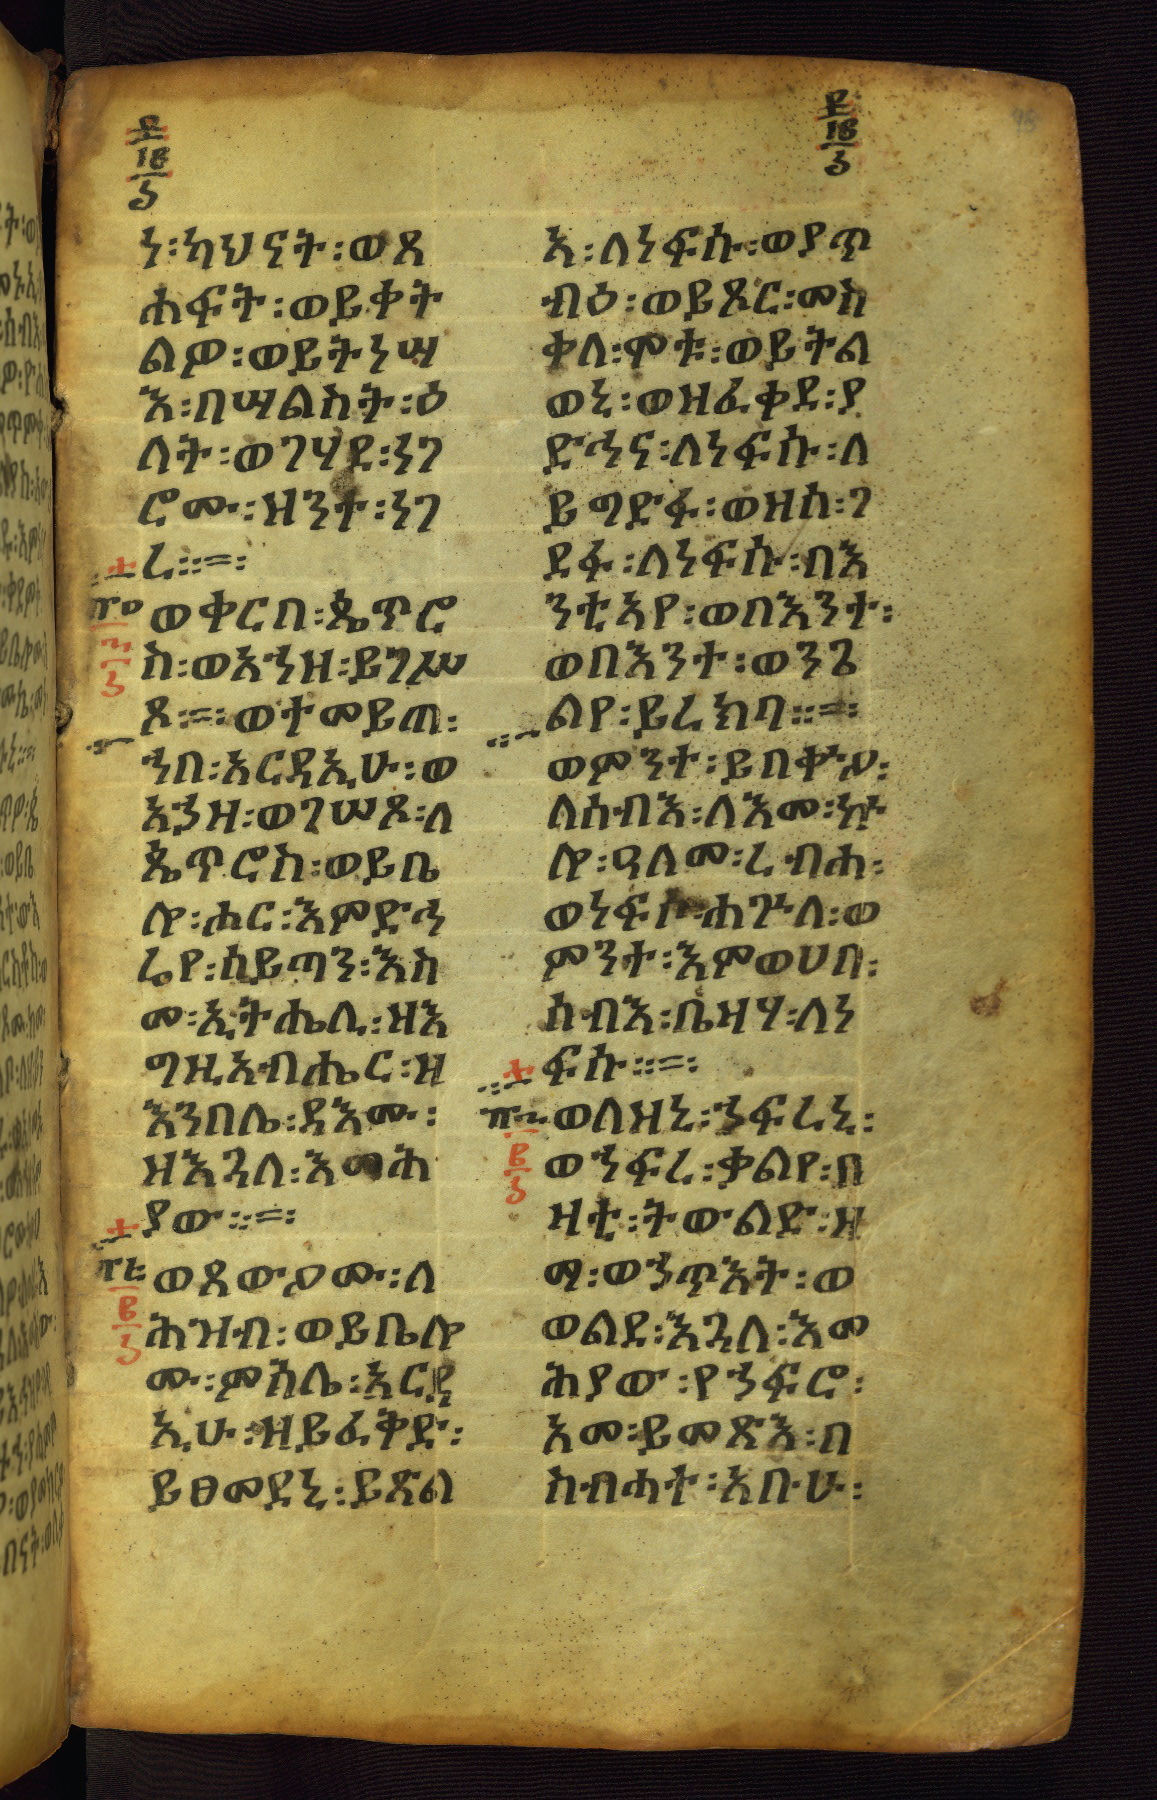 ነ፡ካህናት፡ወጸ
ሐፍት፡ወይቀት
ልዎ፡ወይትነሣ
እ፡በሣልስት፡ዕ
ለት፡ወገሃደ፡ነገ
ሮሙ፡ዝንተ፡ነገ
ረ።=፡
ወቀርበ፡ጴጥሮ
ስ፡ወአኀዘ፡ይገሥ
ጾ፡=፡ወተመይጠ፡
ኀበ፡አርዳኢሁ፡ወ
አኃዘ፡ወገሠጾ፡ለ
ጴጥሮስ፡ወይቤ
ሎ፡ሑር፡እምድኅ
ሬየ፡ሰይጣን፡እስ
መ፡ኢትሔሊ፡ዘእ
ግዚአብሔር፡ዘ
እንበለ፡ዳእሙ፡
ዘእጓለ፡እመሕ
ያው።=፡
ወጸውዖሙ፡ለ
ሕዝብ፡ወይቤሎ
ሙ፡ምስለ፡አርዳ
ኢሁ፡ዘይፈቅድ፡
ይፀመደኒ፡ይጽል
እ፡ለነፍሱ፡ወያጥ
ብዕ፡ወይጹር፡መስ
ቀለ፡ምቱ፡ወይትል
ወኒ፡ወዘፈቀደ፡ያ
ድኅና፡ለነፍሱ፡ለ
ይግድፋ፡ወዘሰ፡ገ
ደፋ፡ለነፍሱ፡በእ
ንቲአየ፡ወበእንተ፡
ወበእንተ፡ወንጌ
ልየ፡ይረክባ።=፡
ወምንተ፡ይበቍዖ፡
ለሰብእ፡ለእመ፡ኵ
ሎ፡ዓለመ፡ረብሐ፡
ወነፍሶ፡ሐጕለ፡ወ
ምንተ፡እምወሀበ፡
ሰብእ፡ቤዛሃ፡ለነ
ፍሱ።=፡
ወለዝኒ፡ኀፍረኒ፡
ወኀፍረ፡ቃልየ፡በ
ዛቲ፡ትውልድ፡ዘ
ማ፡ወኀጥእት፡ወ
ወልደ፡እጓለ፡እመ
ሕያው፡የኀፍሮ፡
አመ፡ይመጽእ፡በ
ስብሐተ፡አቡሁ፡